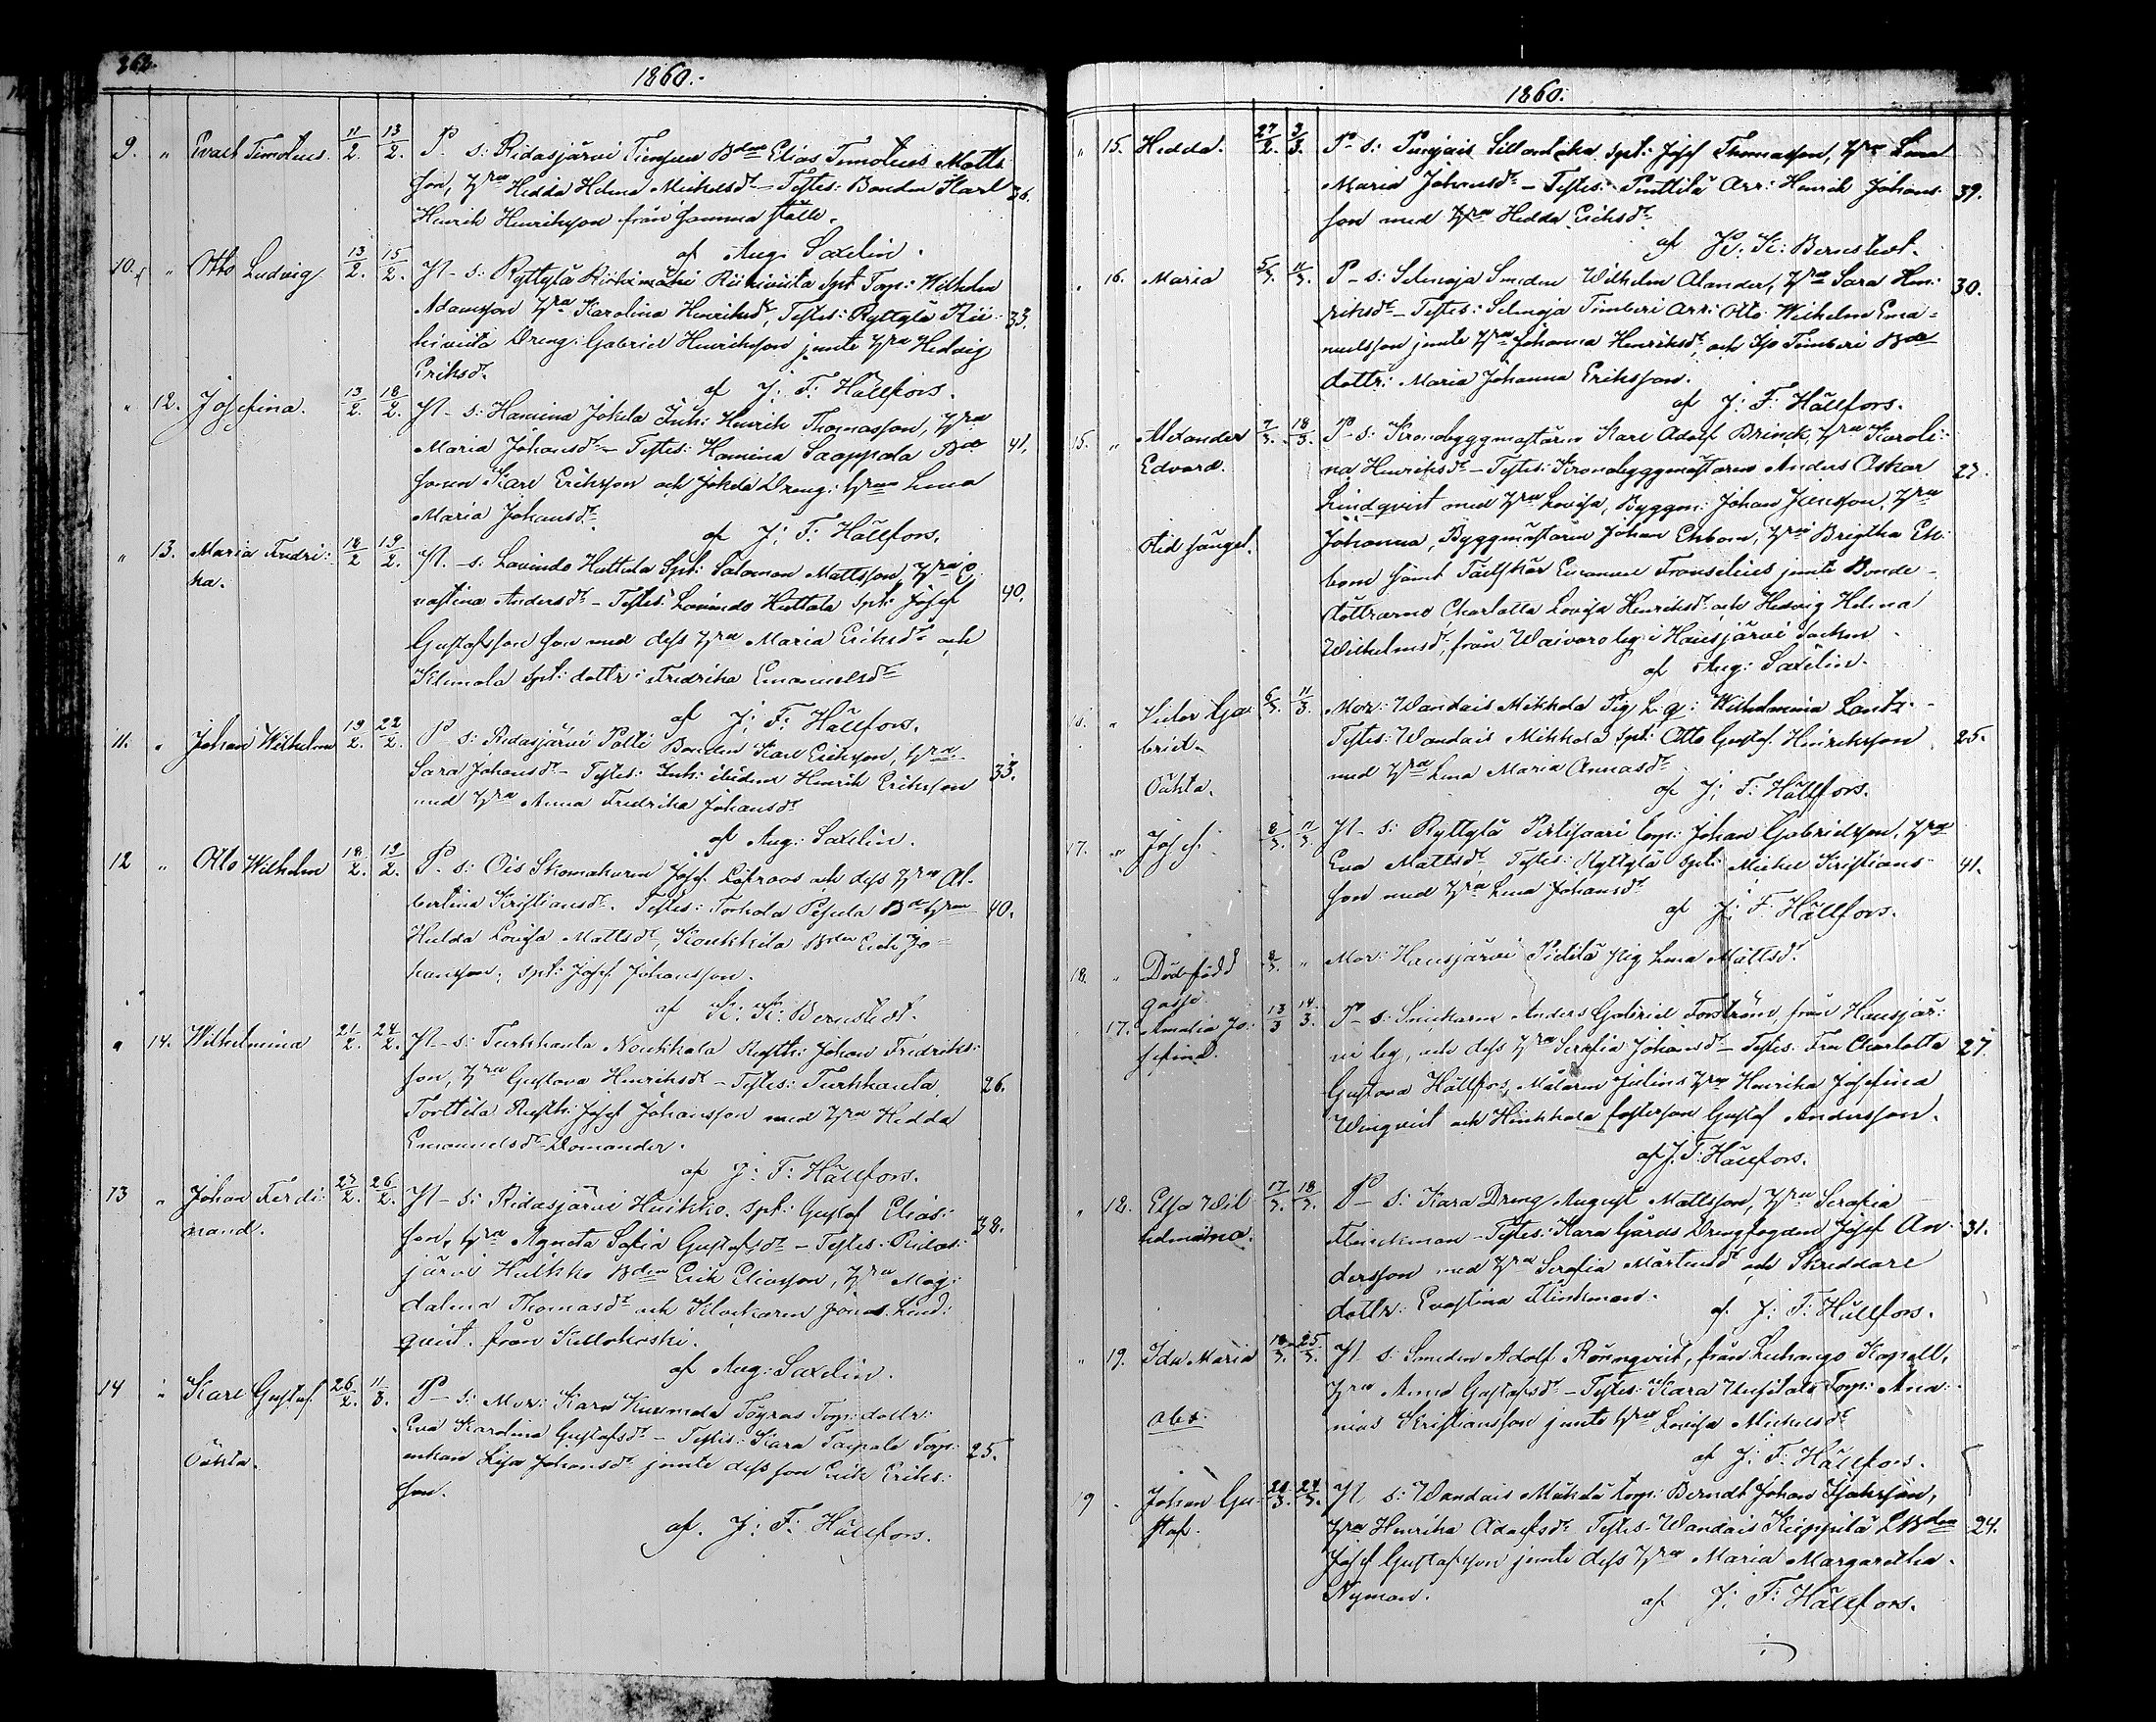 1860.
9. " Evald Timoteus. 11/2. 13/2. P. s: Ridasjärvi Timperi Bden Elias Timoteus Matts-
son, Hru Hedda Helena Mickelsdr - Testes: Bonden Karl 36.
Henrik Henriksson från samma ställe.
af Aug: Saxelin.
10. " Otto Ludvig 13/2. 15/2. P - s: Ryttylä Riihiviita Spt Torp: Wilhelm
Adamsson Hru Karolina Henriksdr, Testes: Ryttylä Rii- 33.
hiviita Dreng: Gabriel Henriksson jemte Hru Hedvig
Eriksdr.
af J: F: Hällfors.
" 12. Josefina. 13/2. 18/2. P - s: Hamina Jokela Inh: Henrik Thomasson, Hru
Maria Johansdr - Testes: Hamina Saappala Bde 41.
sonen Karl Eriksson och Jokela Dreng: Hrun Lena
Maria Johansdr.
af J: F: Hällfors.
" 13. Maria Fredri- 18/2 19/2. P. - s: Lavinda Huttula Spt: Salomon Mattsson, Hru E-
ka.
vastina Andersdr - Testes: Lavinda Huttala Spt: Josef 40.
Gustafsson son med dess Hru Maria Eriksdr och
Klemola Spt: dottr: Fredrika Emanuelsdr
af J: F: Hällfors.
11. " Johan Wilhelm 19/2. 22/2. P s: Ridasjärvi Patti Bonden Karl Eriksson, Hru
Sara Johansdr - Testes: Inh: ibidem Henrik Eriksson 33.
med Hru Anna Fredrika Johansdr
af Aug: Saxelin.
12 " Otto Wilhelm 18/2. 19/2. P. s: Ois Skomakaren Josef Löfroos och dess Hru Al-
bertina Kristiansdr. Testes: Torhola Pesula Bde Hrun 40.
Hulda Lovisa Mattsdr, Koukkila Bden Erik Jo-
hansson, Spt: Josef Johansson.
af K: K: Bernstedt.
" 14. Wilhelmina 21/2. 24/2. P - s: Turkhauta Noukkala Rusth: Johan Fredriks-
son, Hru Gustava Henriksdr - Testes: Turkhauta 26.
Torttila Rusth: Josef Johansson med Hru Hedda
Emanuelsdr Domander.
af J: F: Hällfors.
13 " Johan Ferdi- 24/2. 26/2. P - s: Ridasjärvi Huikko. Spt: Gustaf Elias-
nand.
son, Hru Agneta Sofia Gustafsdr - Testes: Ridas- 38.
järvi Huikko Bden Erik Eliasson, Hru Mag-
dalena Thomasdr och Klockaren Jonas Lind-
qvist från Kellokoski.
af Aug: Saxelin.
14 " Karl Gustaf. 26/2. 11/3. P - s: Mor: Kara Kurmola Töyräs Torp: dottr:
Eva Karolina Gustafsdr - Testes: Kara Taipale Torp- 25.
Oäkta.
enkan Lisa Johansdr jemte dess son Erik Eriks-
son.
af. J: F: Hällfors.
1860.
" 15. Hedda. 27/2. 3/3. P - s: Spt: Josef Thomasson, Hru Lena
Maria Johansdr - Testes: Puttila Arr: Henrik Johans- 39.
son med Hru Hedda Eriksdr.
af K: K: Bernstedt.
" 16. Maria 5/3. 11/3. P - s: Selänoja Smeden Wilhelm Alander, Hru Sara Hen- 30.
riksdr - Testes: Selänoja Timberi Arr: Otto Wilhelm Ema-
nuelsson jemte Hru Johanna Henriksdr, och Timberi Bde
dottr: Maria Johanna Eriksson.
af J: F: Hällfors.
15. " Alexander 7/3. 18/3. P - s: Kronobyggmästaren Karl Adolf Brinck, Hru Karoli-
Edvard.
na Henriksdr - Testes: Kronobyggmästaren Anders Oskar 27.
Lindqvist med Hru Lovisa, Byggm: Johan Jansson, Hru
Johanna, Byggmästaren Johan Ekbom, Hru Brigitha Ek-
bom samt Fältskär Emanuel Franselius jemte Bonde-
döttrarne Charlotta Lovisa Henriksdr och Hedvig Helena
Wilhelmsdr, från i Hausjärvi Socken.
af Aug: Saxelin.
16. " Victor Ga- 6/3. 11/3. Mor: Wandais Mikkola Pig L. q: Wilhelmina Lantz.-
briel.
Testes: Wandais Mikkola Spt: Otto Gustaf Henriksson 25.
Oäkta.
med Hru Lena Maria Annasdr
af J: F: Hällfors.
17. " Josef. 8/3. 11/3. P - s: Ryttylä Pirtisaari Torp: Johan Gabrielsson, Hru
Eva Mattsdr Testes: Ryttylä Spt: Michel Kristians- 41.
son med Hru Lena Johansdr
af J: F: Hällfors.
18. " Död-född 8/3. " Mor: Hausjärvi Pietilä Pig Lena Mattsdr.
gosse.
" 17. Amalia Jo- 13/3 14/3. P - s: Snickaren Anders Gabriel Forström från Hausjär-
sefina.
vi by, och dess Hru Serafia Johansdr - Testes: Fru Charlotta 27.
Gustava Hällfors, Målaren Julins Hru Henrika Josefina
Winqvist och Hinkkala fosterson Gustaf Andersson.
af J. F: Hällfors.
" 18. Elsa Wil- 17/3. 18/3. P - s: Kara Dreng August Mattsson, Hru Serafia
helmina.
Flinckman - Testes: Kara Gårds Drengfogden Josef An- 31.
dersson med Hru Serafia Mårtensdr och Skreddare
dottr: Evastina Flinkman.
af J: F: Hällfors.
" 19. Ida Maria 18/3. 25/3. P s: Smeden Adolf Rönnqvist, från Kapell,
Hru Anna Gustafsdr - Testes: Kara Torp: Ana-
nias Kristiansson jemte Hru Lovisa Mickelsdr
af J: F: Hällfors.
19 " Johan Gu- 20/3. 24/3. P s: Wandais Mäkelä Torp: Berndt Johan
staf.
Hru Henrika Adolfsdr Testes: Wandais Kieppilä LBden 24.
Josef Gustafsson jemte dess Hru Maria Margaretha
Nyman.
af J: F: Hällfors.